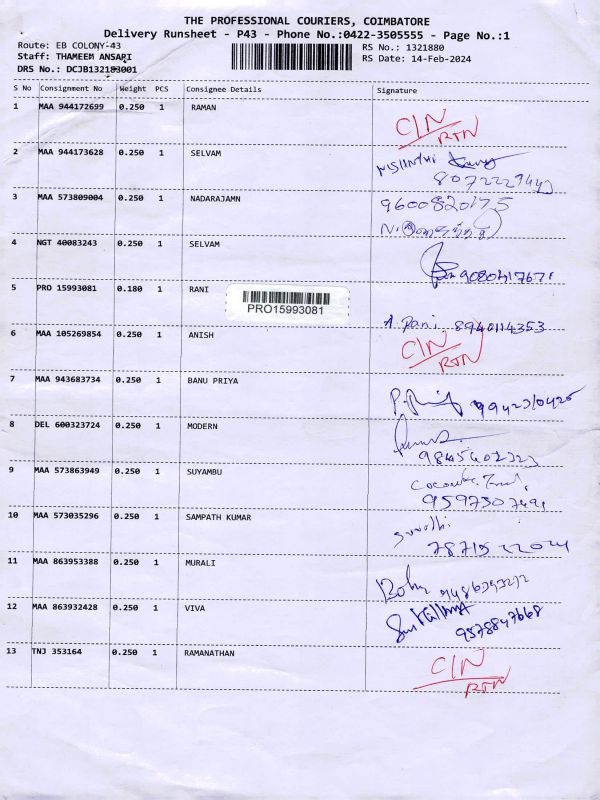 THE PROFESSIONAL COURIERS, COIMBATORE
Delivery Runsheet - P43 - Phone No.:0422-3505555 - Page No.:1
Route: EB COLONY-43
RS No.: 1321880
Staff: THAMEEM ANSARI
RS Date: 14-Feb-2024
DRS No.: DCJB132183001
S No Consignment No Weight PCS Consignee Details Signature
1 MAA 944172699 0.250 1 RAMAN
CIN
RTN
2 MAA 944173628 0.250 1 SELVAM
3 MAA 573809004 0.250 1 NADARAJAMN 9600820175
4 NGT 40083243 0.250 1 SELVAM
5 PRO 15993081 0.180 1 RANI
PRO15993081
A. Rani 8940114353
6 MAA 105269854 0.250 1 ANISH
CIN
RTN
7 MAA 943683734 0.250 1 BANU PRIYA
8 DEL 600323724 0.250 1 MODERN
9 MAA 573863949 0.250 1 SUYAMBU
9597507491
10 MAA 573035296 0.250 1 SAMPATH KUMAR
11 MAA 863953388 0.250 1 MURALI
12 MAA 863932428 0.250 1 VIVA
9578847668
13 TNJ 353164 0.250 1 RAMANATHAN
CIN
RTN